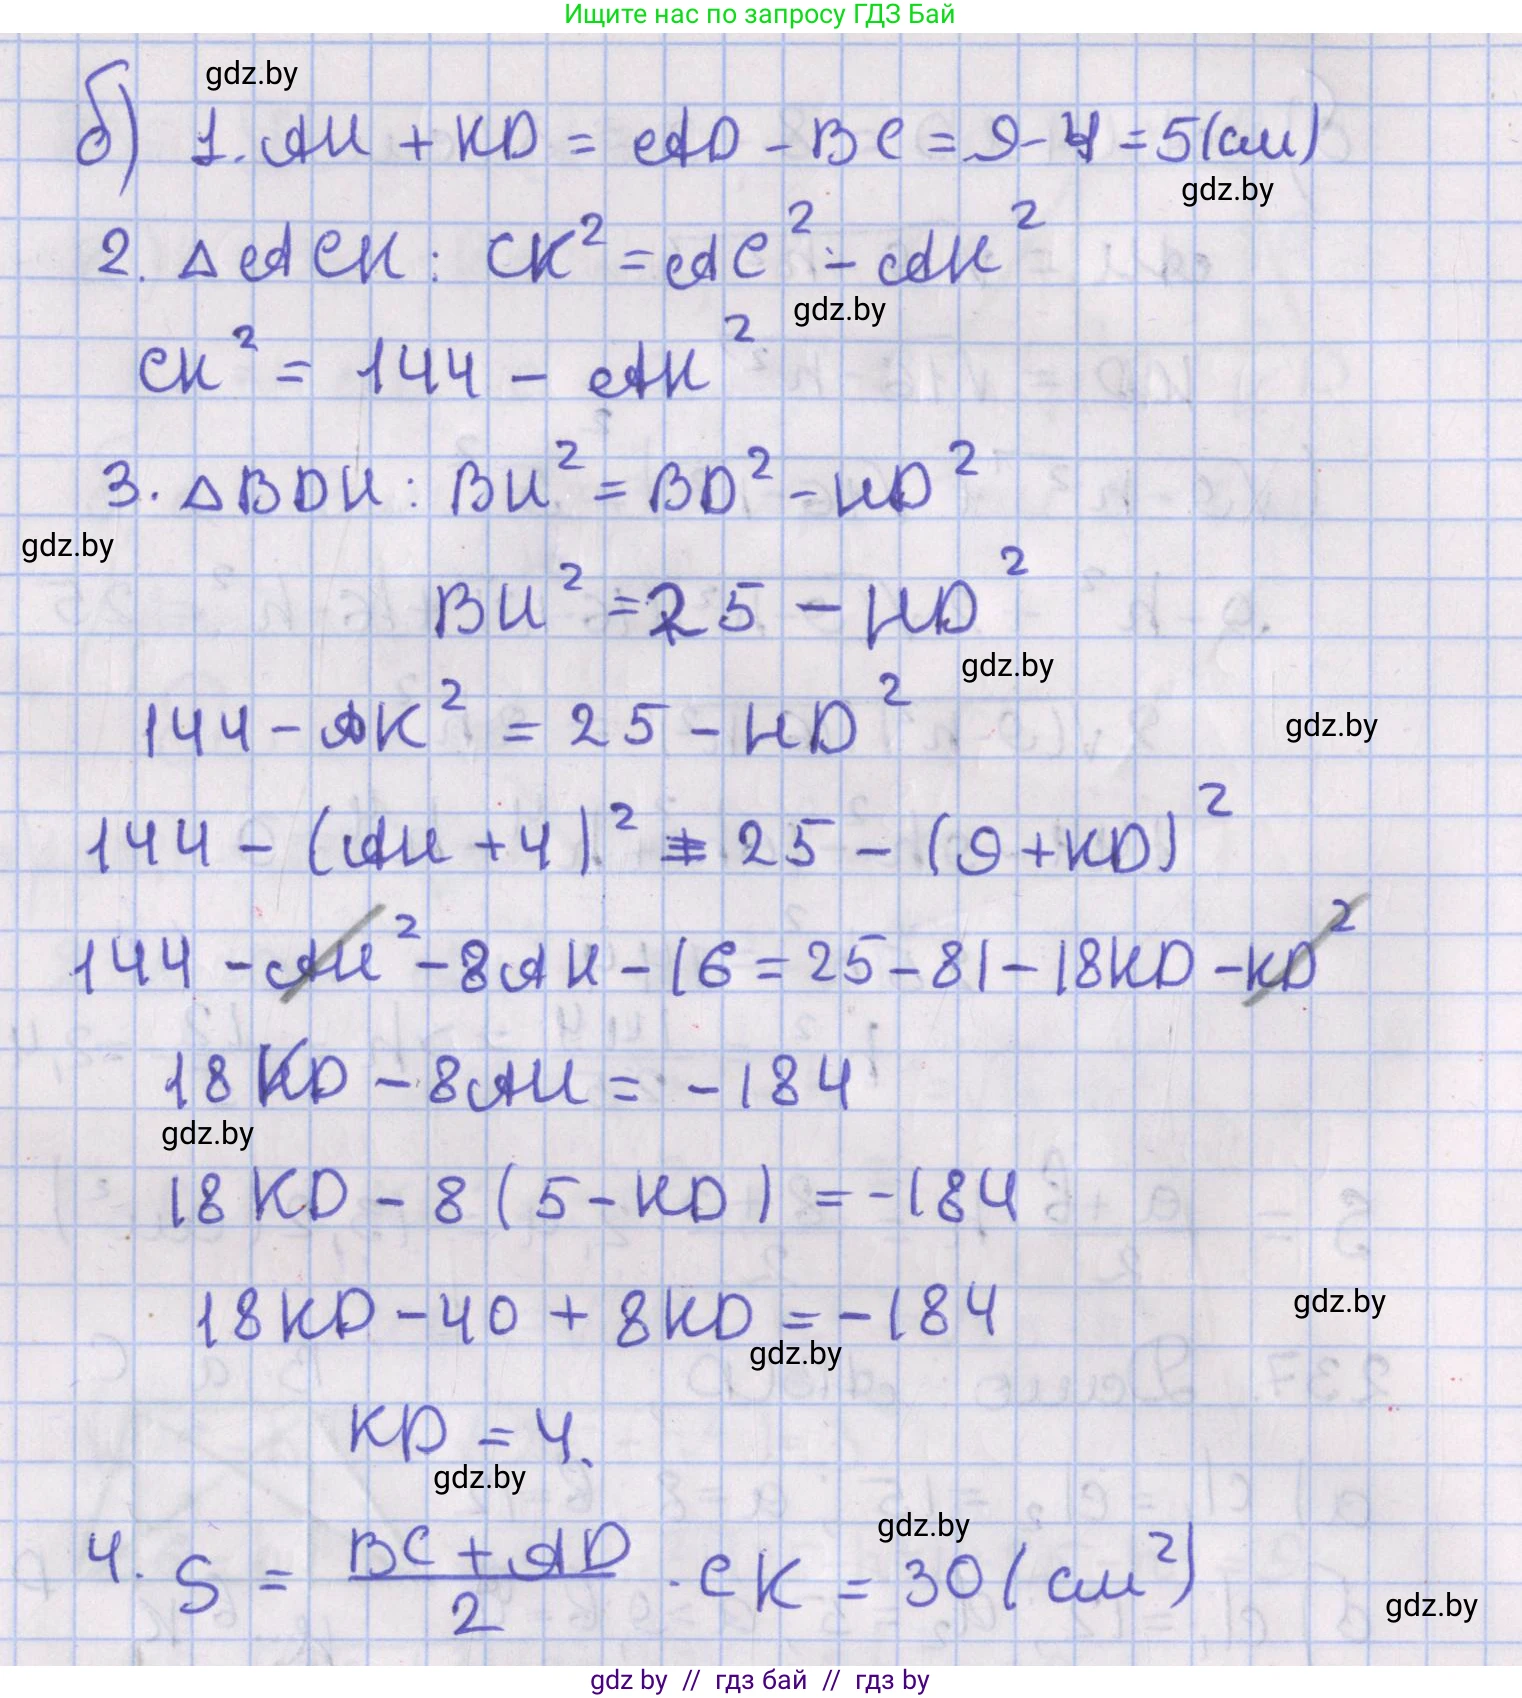 Ищите нас по запросу ГДЗ Бай
gdz.by
б) 1. AH + KD = AD - BC = 9 - 4 = 5 (см)
gdz.by
2. △ ACK : CK² = AC² - AK²
gdz.by
CK² = 144 - AK²
3. △ BDH : BH² = BD² - HD²
gdz.by
BH² = 25 - HD²
gdz.by
144 - AK² = 25 - HD²
gdz.by
144 - (AH + 4)² = 25 - (9 + KD)²
144 - AH² - 8AH - 16 = 25 - 81 - 18KD - KD²
18KD - 8AH = -184
gdz.by
18KD - 8(5 - KD) = -184
18KD - 40 + 8KD = -184
gdz.by
gdz.by
KD = 4.
gdz.by
gdz.by
4. S = (BC + AD)/2 · CK = 30 (см²)
gdz.by
gdz by // гдз бай // гдз by